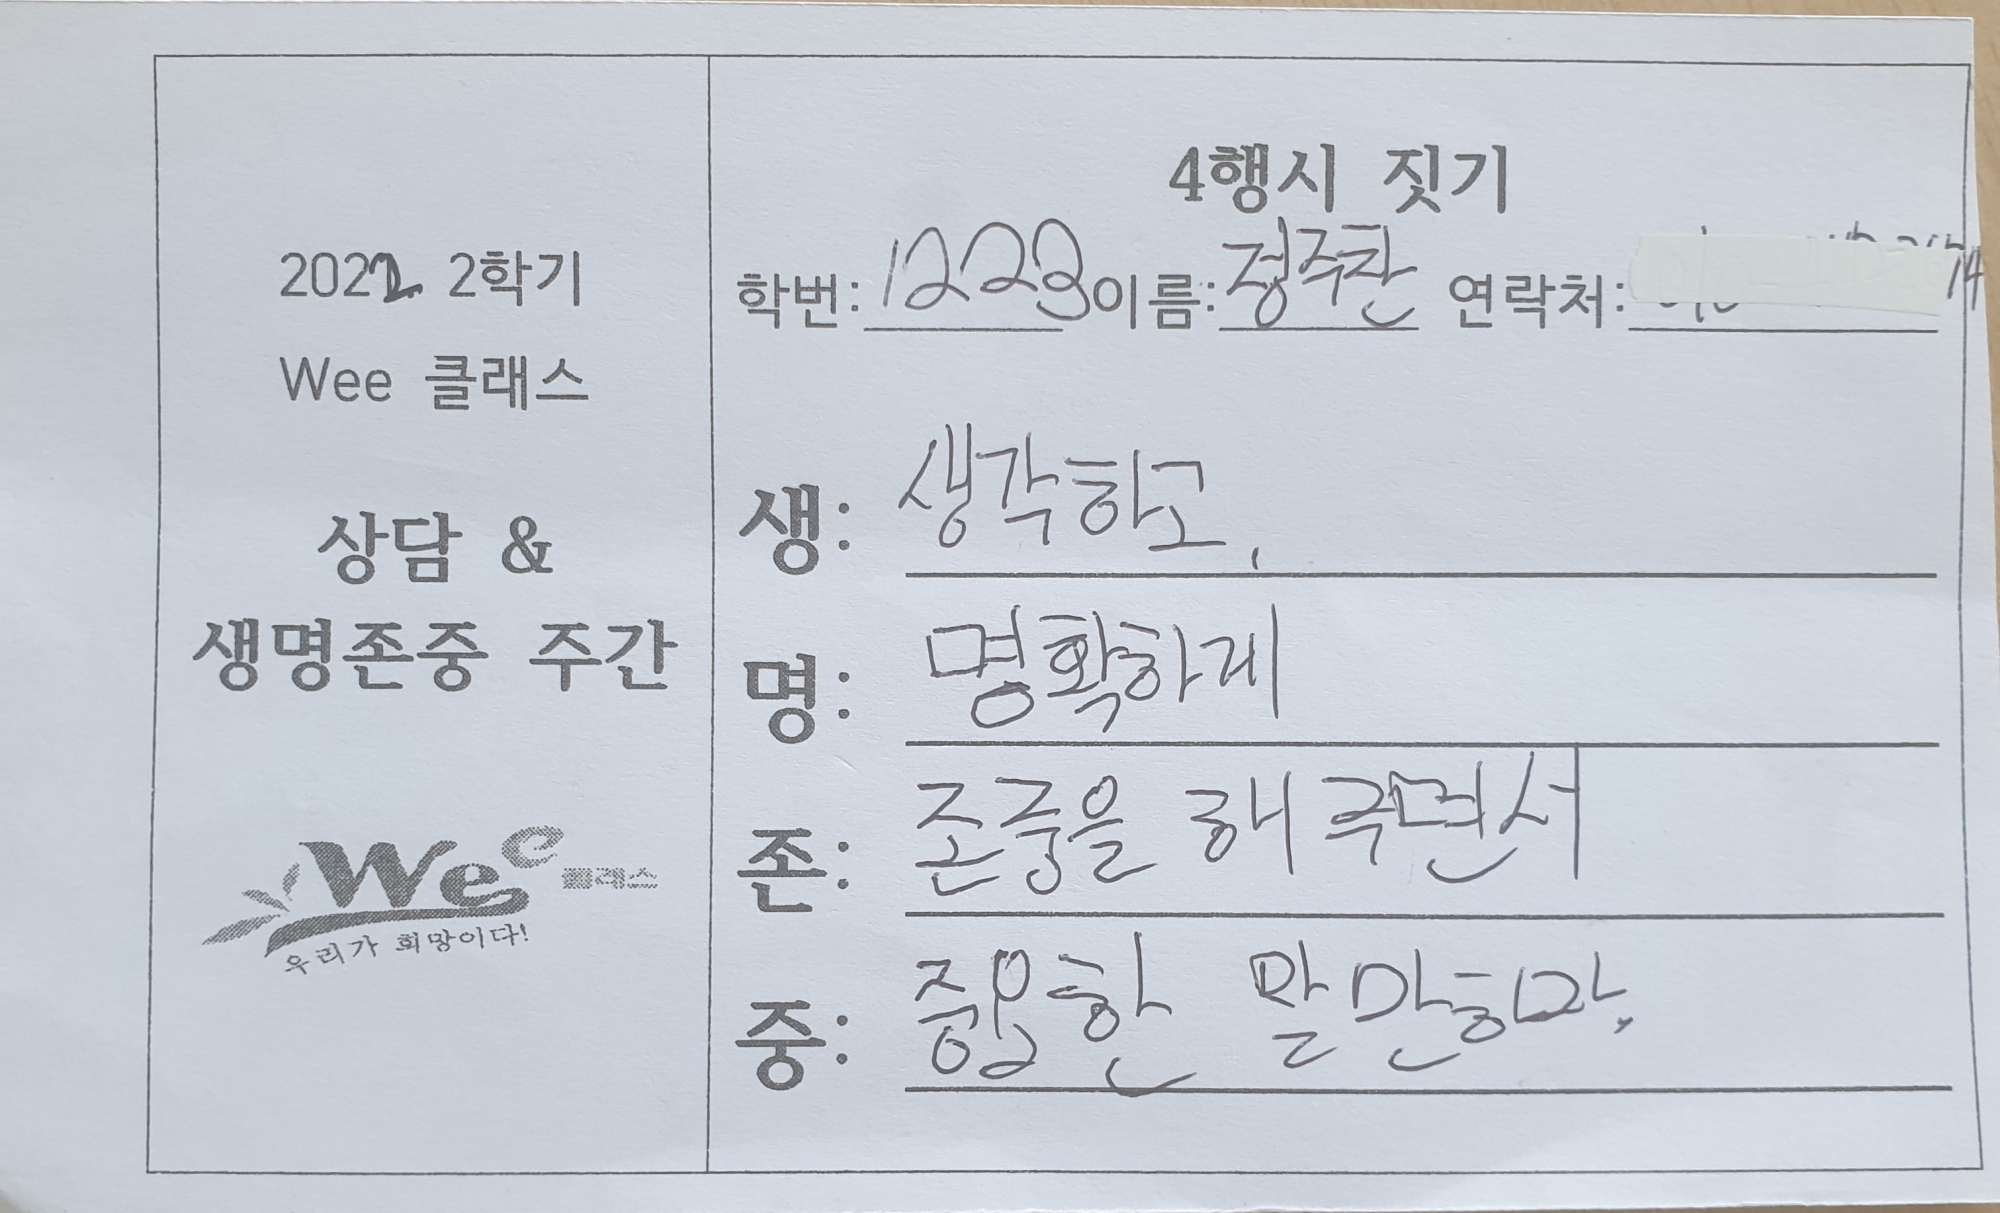 4행시 짓기
2022 2학기
학번: 12223 이름: 정주찬 연락처:
Wee 클래스
상담 &
생명존중 주간
생: 생각하고,
명: 명확하게
존: 존중을 해주면서
중: 중요한 말만하자.
Wee 클래스
우리가 희망이다!